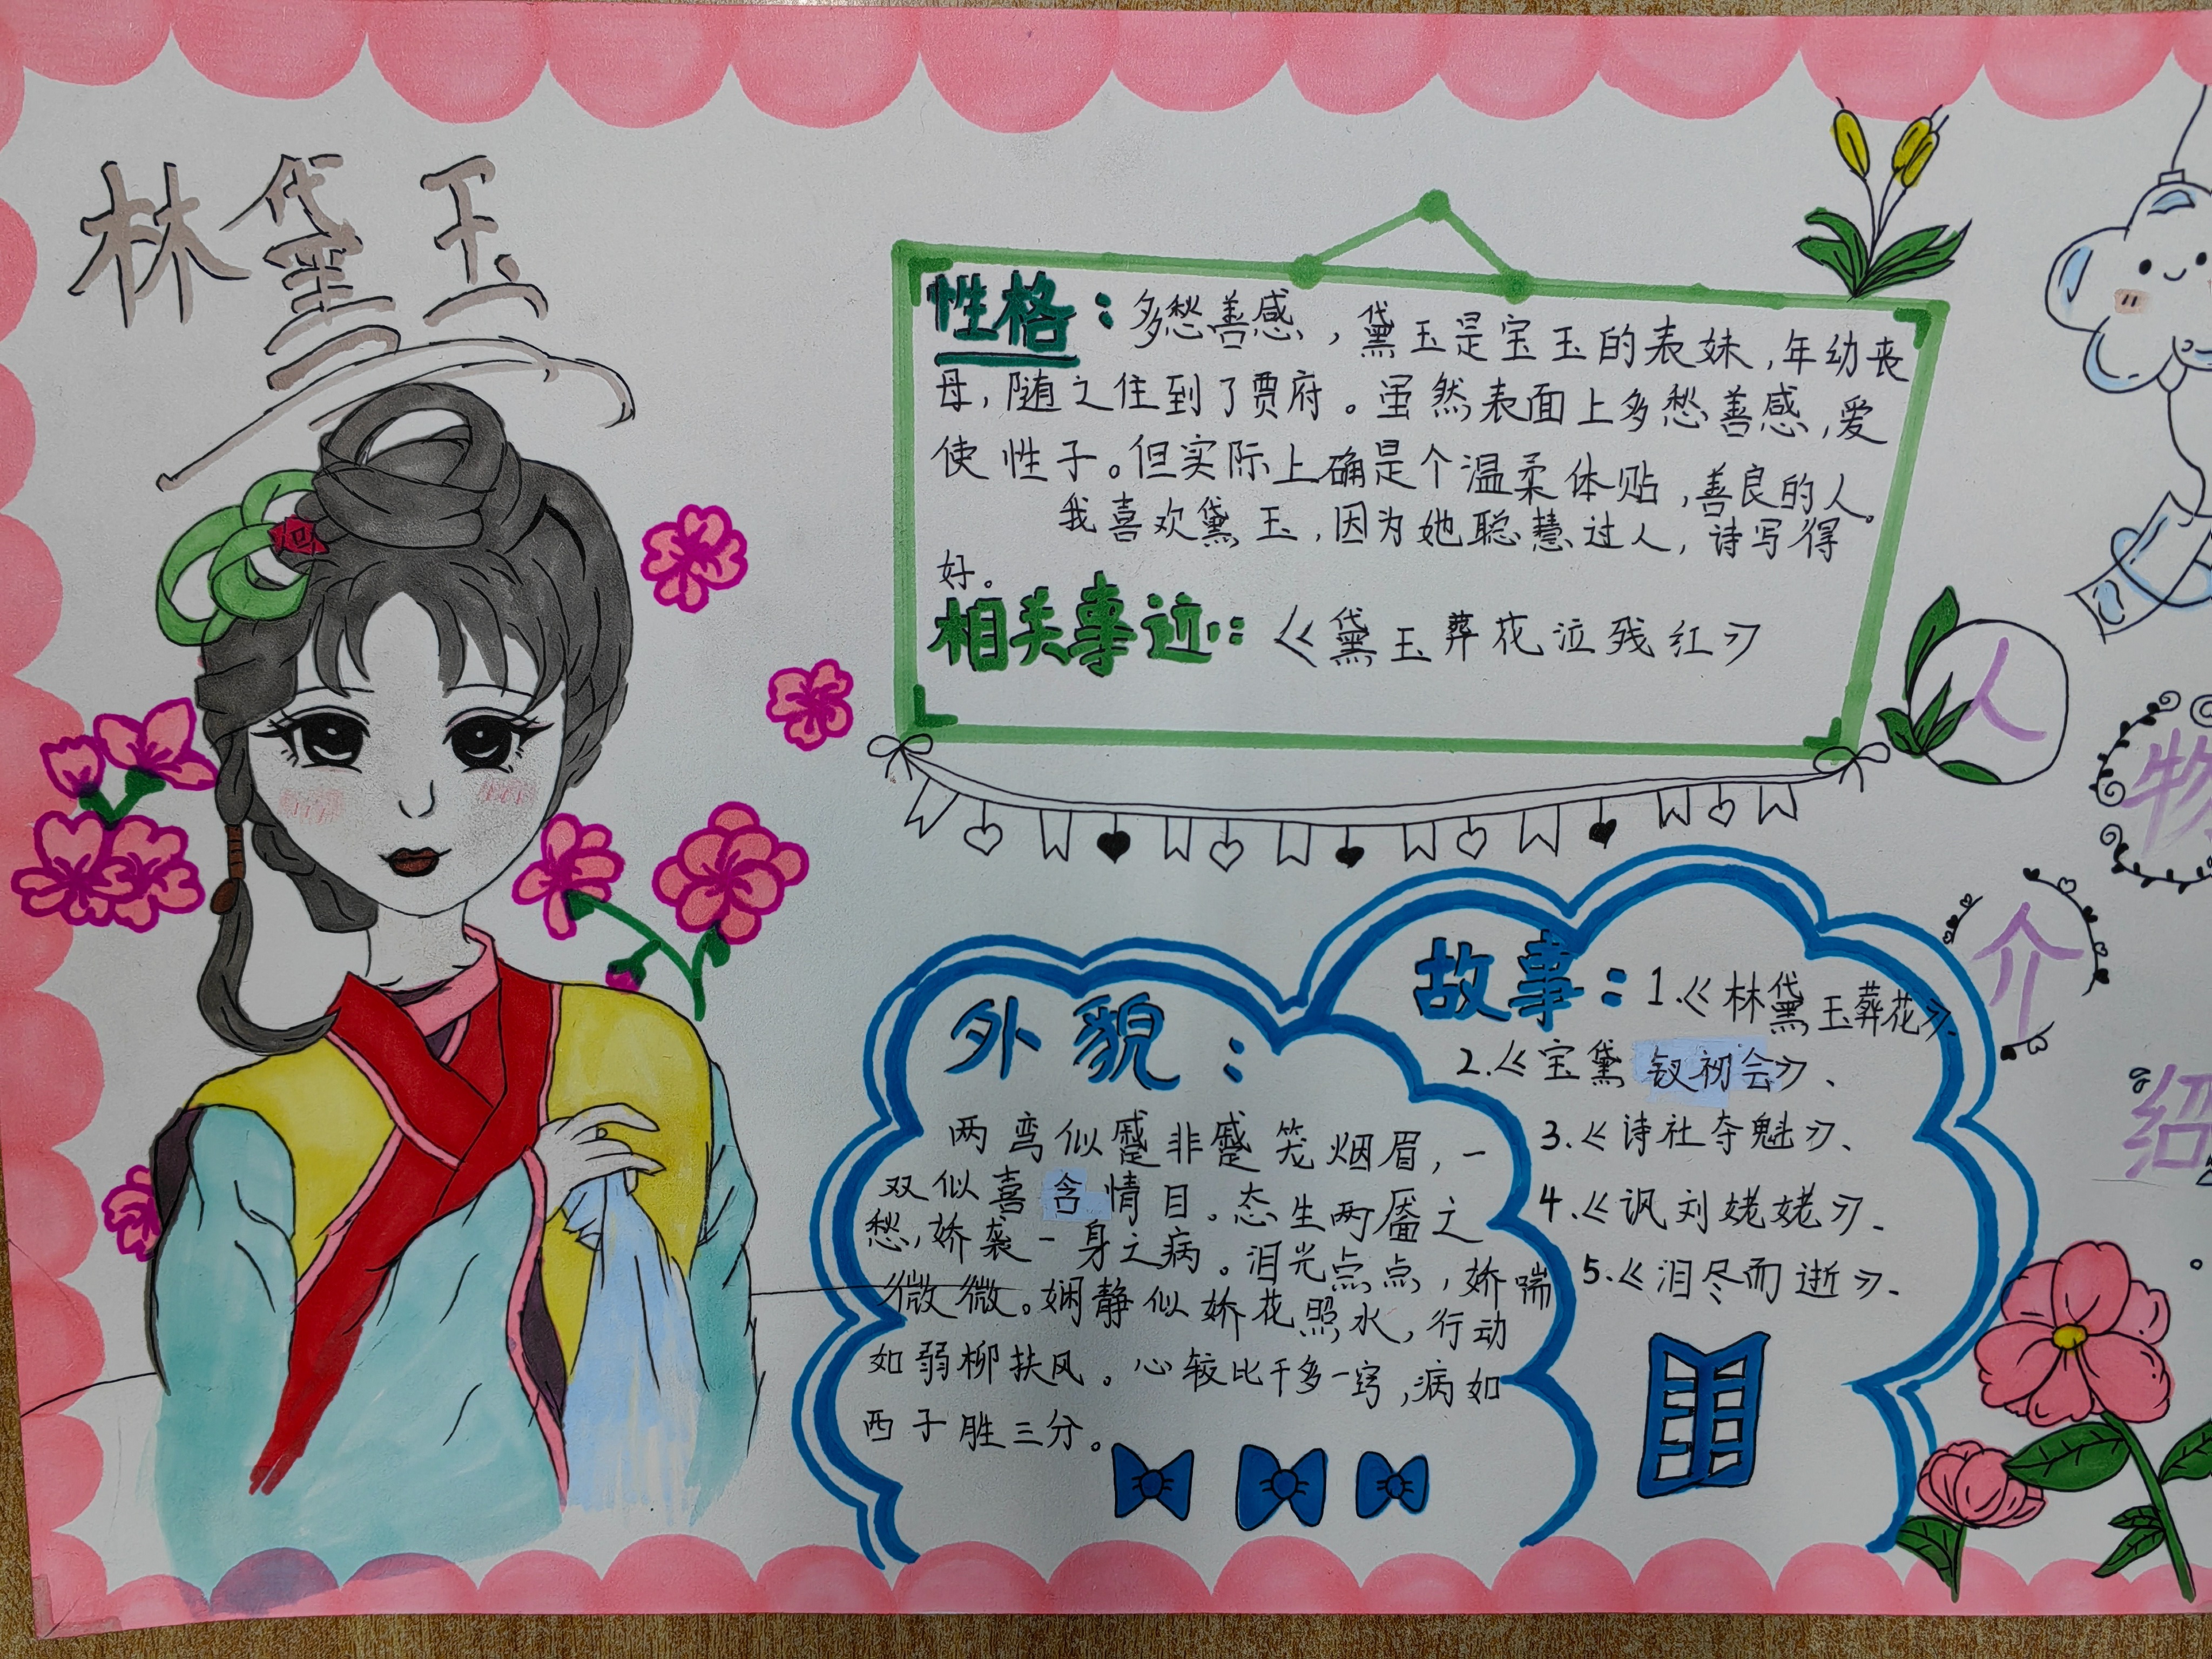 林黛玉
性格：多愁善感，黛玉是宝玉的表妹，年幼丧
母，随之住到了贾府。虽然表面上多愁善感，爱
使性子。但实际上确是个温柔体贴，善良的人。
我喜欢黛玉，因为她聪慧过人，诗写得
好。
相关事迹：《黛玉葬花泣残红》
人
物
介
绍
外貌：
两弯似蹙非蹙笼烟眉，一
双似喜含情目。态生两靥之
愁，娇袭一身之病。泪光点点，娇喘
微微。娴静似娇花照水，行动
如弱柳扶风。心较比干多一窍，病如
西子胜三分。
故事：1.《林黛玉葬花》、
2.《宝黛钗初会》、
3.《诗社夺魁》、
4.《讽刘姥姥》、
5.《泪尽而逝》、